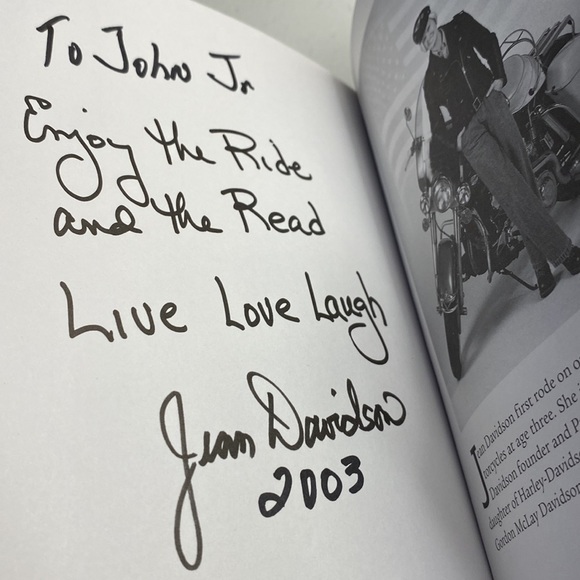 To John Jr
Enjoy the Ride
and the Read
Live Love Laugh
Jean Davidson
2003
Jean Davidson first rode on
motorcycles at age three. She
Davidson founder and
daughter of Harley-Davidso
Gordon McLay Davidson